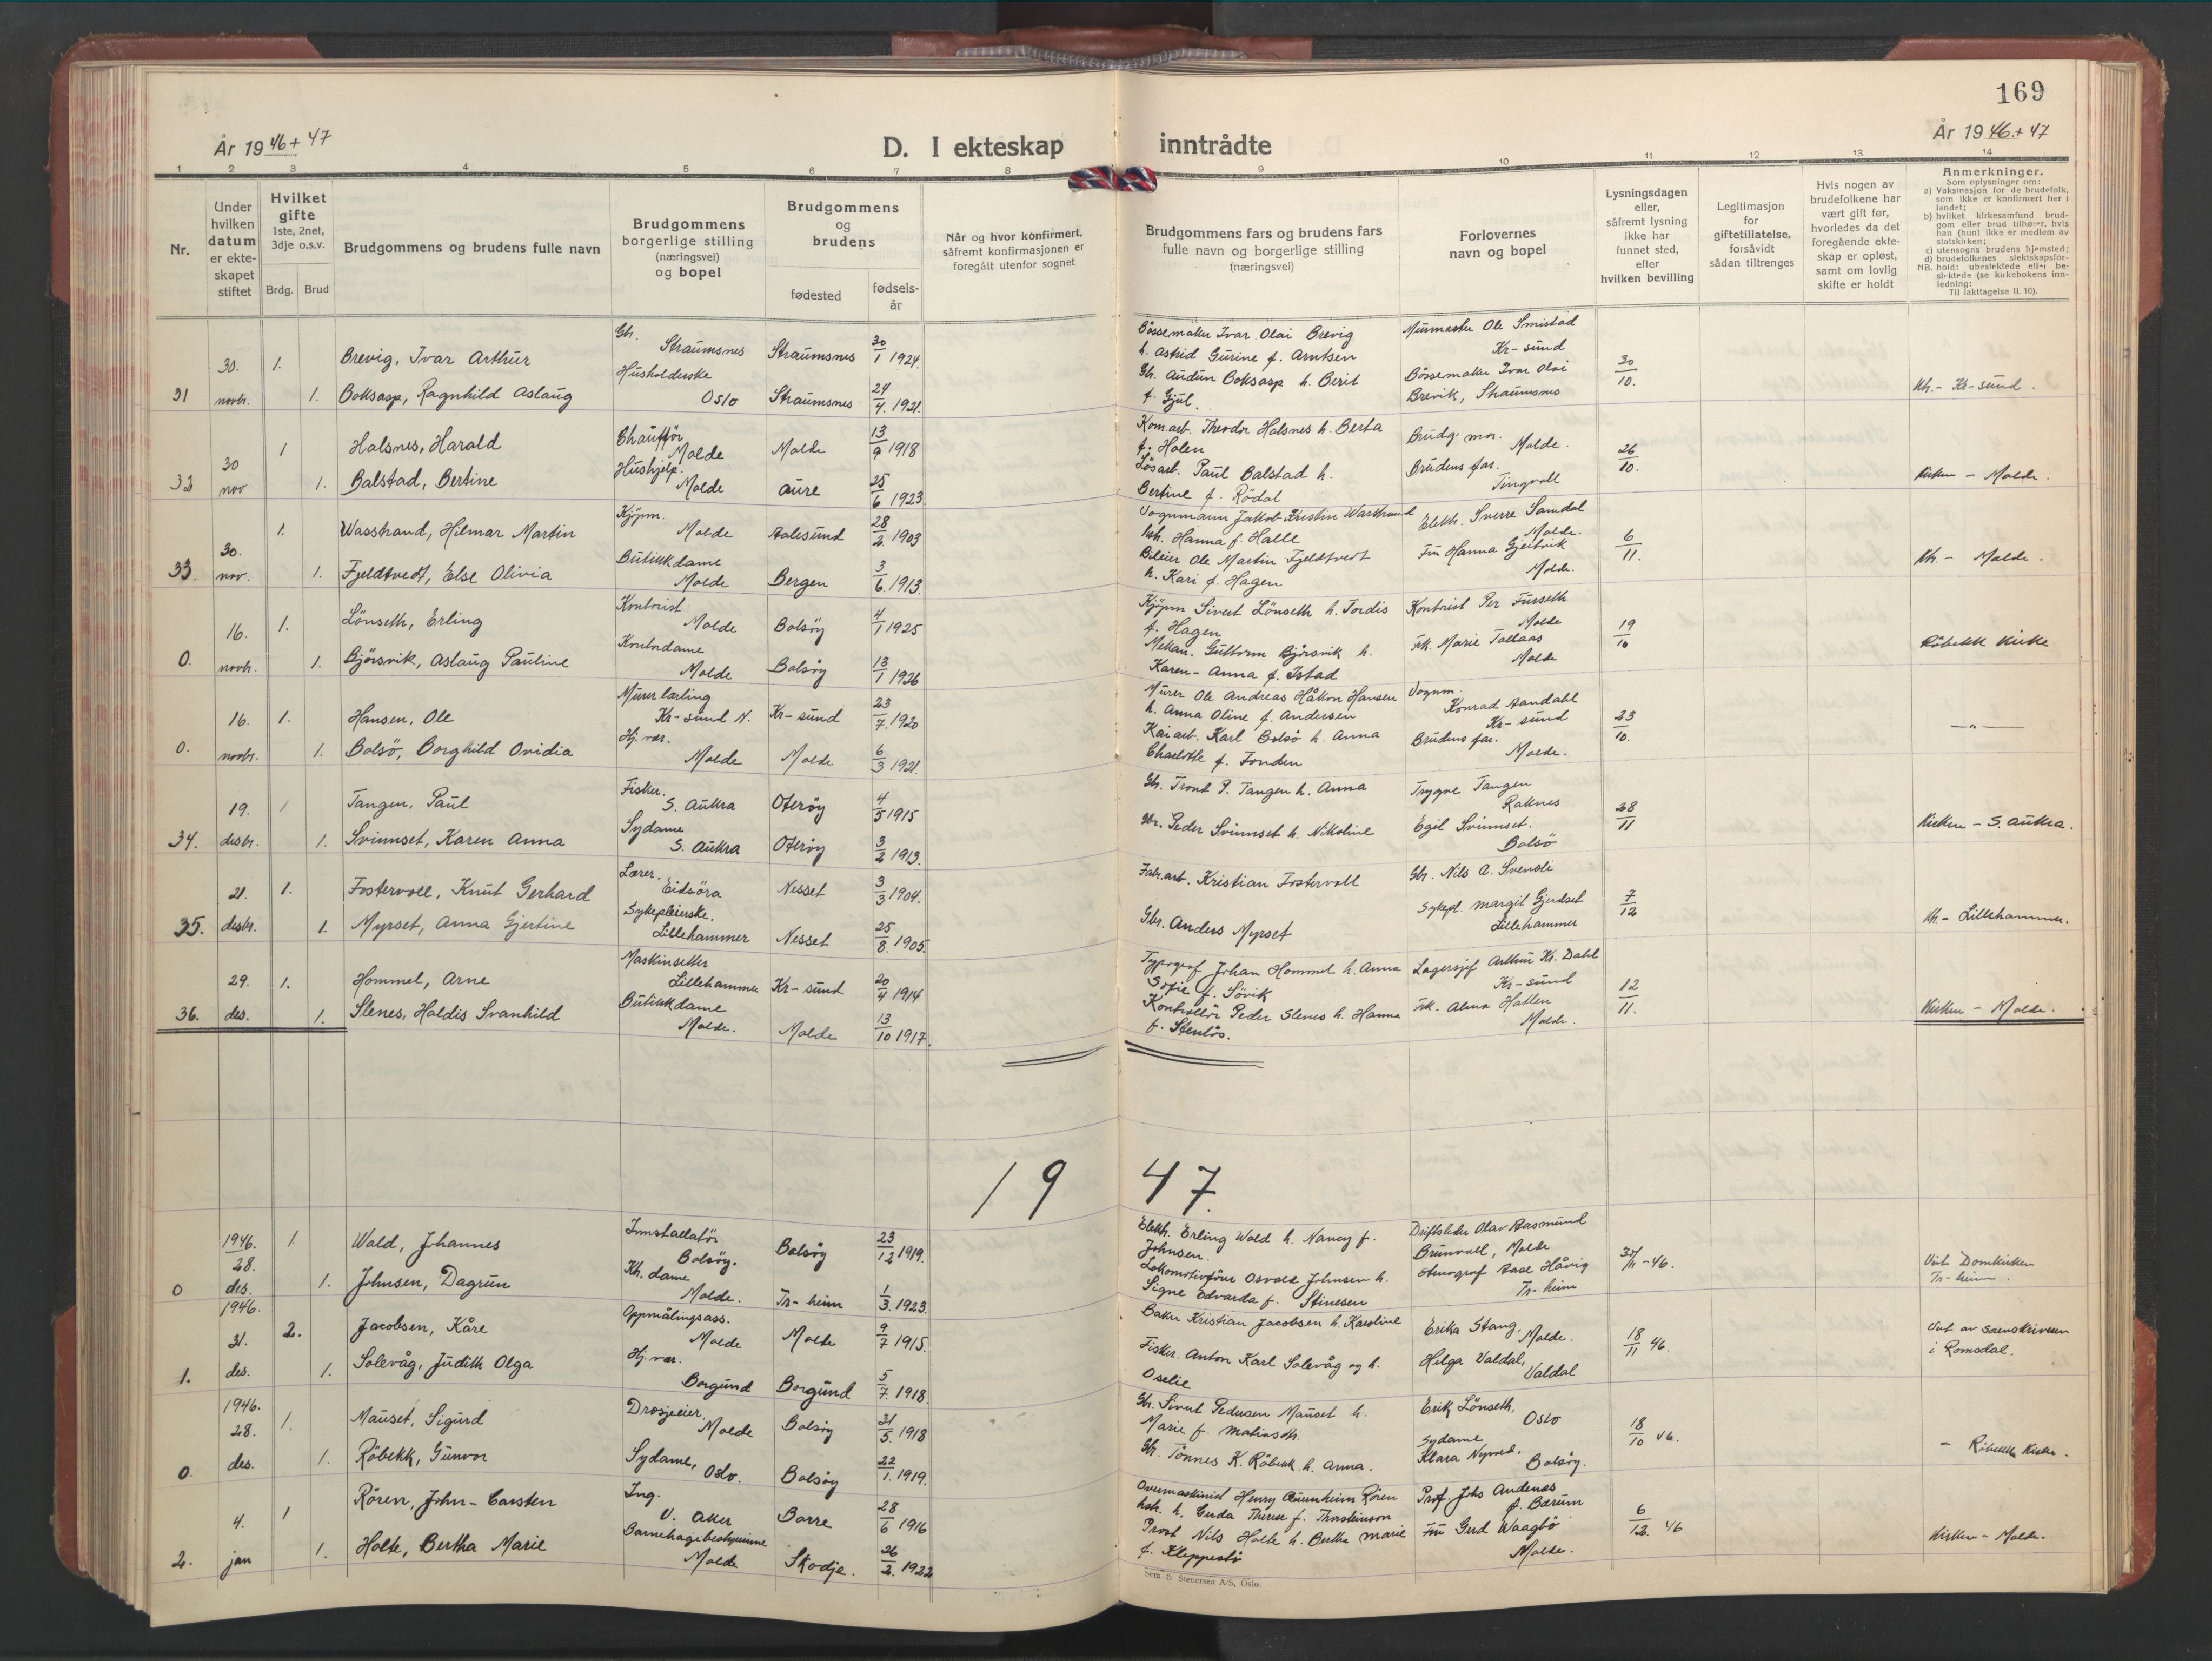 169
År 1946 + 47
D. I ekteskap inntrådte
År 1946 + 47
1 2 3 4 5 6 7 8 9 10 11 12 13 14
Nr.
Under hvilken datum er ekteskapet stiftet
Hvilket gifte 1ste, 2net, 3dje o.s.v.
Brdg. Brud
Brudgommens og brudens fulle navn
Brudgommens borgerlige stilling (næringsvei) og bopel
Brudgommens og brudens
fødested
fødselsår
Når og hvor konfirmert, såfremt konfirmasjonen er foregått utenfor sognet
Brudgommens fars og brudens fars fulle navn og borgerlige stilling (næringsvei)
Forlovernes navn og bopel
Lysningsdagen eller, såfremt lysning ikke har funnet sted, efter hvilken bevilling
Legitimasjon for giftetillatelse, forsåvidt sådan tiltrenges
Hvis nogen av brudefolkene har vært gift før, hvorledes da det foregående ekteskap er opløst, samt om lovlig skifte er holdt
Anmerkninger.
Som oplysninger om:
a) Vaksinasjon for de brudefolk, som ikke er konfirmert her i landet;
b) hvilket kirkesamfund brudgom eller brud tilhører, hvis han (hun) ikke er medlem av statskirken;
c) utensogns brudens hjemsted;
d) brudefolkenes slektskapsforhold: ubeslektede eller beslektede (se kirkebokens innledning:
NB. Til iakttagelse II. 10).
30. 1. Brevig, Ivar Arthur Gbr. Straumsnes Straumsnes 30/1 1924. Bøssemaker Ivar Olai Brevig h. Astrid Gurine f. Arntsen Murmester Ole Smistad Kr-sund 30/10.
31 novbr. 1. Boksasp, Ragnhild Aslaug Husholderske Oslo Straumsnes 24/4. 1921. Gbr. Audun Boksasp h. Berit f. Gjul. Bøssemaker Ivar Olai Brevik, Straumsnes Kh. - Kr-sund.
30 1 Halsnes, Harald Chauffør Molde Molde 13/9 1918 Kom.arb. Theodor Halsnes h. Berta f. Holen Brudg. mor. Molde. 26/10.
32 nov 1. Balstad, Bertine Hushjelp. Molde Aure 25/6 1923. Løsarb. Paul Balstad h. Bertine f. Rödal Brudens far. Tingvoll Kirken - Molde.
30. 1. Wasstrand, Hilmar Martin Kjøpm. Molde Aalesund 28/2. 1903 Vognmann Jakob Kristin Warstrand h. Hanna f. Halle Elektr. Sverre Samdal Molde. 6/11.
33. nov. 1. Fjeldtvedt, Else Olivia Butikkdame Molde Bergen 3/6. 1913. Bileier Ole Martin Fjeldtvedt h. Kari f. Hagen Fru Hanna Gjeitvik Molde. Kh - Molde.
16. 1. Lönseth, Erling Kontorist Molde Bolsöy 4/1 1925 Kjöpm Sivert Lönseth h. Tordis f. Hagen Kontorist Per Furseth Molde 19/10
0. novbr. 1. Bjørsvik, Aslaug Pauline Kontordame Molde Bolsöy 13/1 1926 Mekan. Guttorm Bjørsvik h. Karen-Anna f. Istad Frk. Marie Tollaas Molde Röbekk Kirke
16. 1. Hansen, Ole Murerlærling Kr-sund N. Kr-sund 23/7. 1920 Murer Ole Andreas Håkon Hansen h. Anna Oline f. Andersen Vognm. Konrad Aandahl Kr-sund 23/10.
0. novbr. 1. Bolsö, Borghild Ovidia Hj. vær. Molde Molde 6/3 1921. Kaiarb. Karl Bolsö h. Anna Charlotte f. Fonden Brudens far. Molde. -"-
19. 1 Tangen, Paul Fisker. S. Aukra Oteröy 4/5 1915 Gbr. Trond P. Tangen h. Anna Trygve Tangen Raknes 28/11
34. desbr. 1. Svinnset, Karen Anna Sydame S. Aukra Oteröy 3/2 1913. Gbr. Peder Svinnset h. Nikoline Egil Svinnset. Bolsö Kirken - S. Aukra.
21. 1. Fostervoll, Knut Gerhard Lærer. Eidsöra Nesset 3/3 1904. Fabr.arb. Kristian Fostervoll Gbr. Nils A. Svensli 7/12
35. desbr. 1. Myrset, Anna Gjertine Sykepleierske. Lillehammer Nesset 25/8. 1905. Gbr. Anders Myrset Sykepl. Margit Gjerdset Lillehammer Kh - Lillehammer.
29. 1. Hommel, Arne Maskinsetter Lillehammer Kr-sund 20/4 1914 Typograf Johan Hommel h. Anna Sofie f. Sövik Lagersjef Arthur Kr. Dahl Kr-sund 12/11.
36. des. 1. Slenes, Haldis Svanhild Butikkdame Molde. Molde 13/10 1917. Kontrollör Peder Slenes h. Hanna f. Stenlös. Frk. Alma Hallen Molde. Kirken - Molde.
1947.
1946. 28. 1 Wald, Johannes Innstallatör Bolsöy. Bolsöy 23/12 1919. Elektr. Erling Wald h. Nancy f. Johnsen. Driftsleder Olav Aasmund Brunvoll, Molde 30/11 - 46.
0 des. 1. Johnsen, Dagrun Molde. Tr-heim 1/3. 1923. Lokomotivförer Osvald Johnsen h. Signe Edvarda f. Stinesen Stenograf Aase Håvig Tr-heim Viet Domkirken Tr-heim.
1946. 31. 2. Jacobsen, Kåre Oppmålingsass. Molde Molde 9/7 1915. Baker Kristian Jacobsen h. Karoline Erika Stang, Molde. 18/11 46.
1. des. 1. Solevåg, Judith Olga Hj. vær. Borgund Borgund 5/7. 1918. Fisker. Anton Karl Solevåg og h. Oselie Helga Valdal, Valdal Viet av sorenskriveren i Romsdal.
1946. 28. 1. Mauset, Sigurd Drosjeeier. Molde Bolsöy 31/5. 1918 Gbr. Sivert Pedersen Mauset h. Marie f. Erik Lönseth, Oslo 18/10 46.
0. des. 1. Röbekk, Gunvor Sydame, Oslo. Bolsöy 22/1. 1919. Gbr. Tönnes K. Röbekk h. Anna. Sydame Klara Nyvoll. Bolsöy. - Röbekk Kirke.
4. 1 Rören, John-Carsten Ing. V. Aker Borre 28/6 1916 Overmaskinist Henry Rören h. Gerda Therese f. Thorkinson Prof. Johs Andenæs Bærum 6/12. 46
2. jan 1. Holte, Bertha Marie Barnehagebestyrerinne Molde Skodje. 26/2. 1922 Prost Nils Holte h. Bertha Marie f. Kleppestö Fru Gerd Waagbö Molde. Kirken - Molde.
Sem & Stenersen A/S, Oslo.